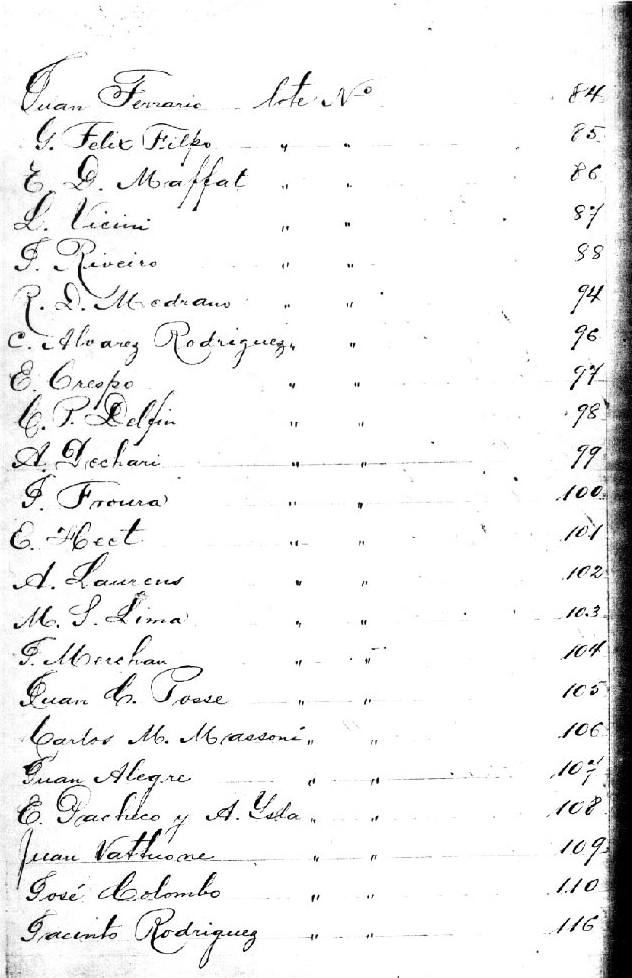 Juan Ferrario lote No 84
G. Felix Filpo " " 85
E. D. Maffat " " 86
L. Vicini " " 87
J. Riveiro " " 88
R. D. Medrano " " 94
C. Alvarez Rodriguez " " 96
E. Crespo " " 97
C. P. Delfin " " 98
A. Dechari " " 99
J. Froura " " 100
E. Hect " " 101
A. Laurens " " 102
M. S. Lima " " 103
J. Merchan " " 104
Juan C. Posse " " 105
Carlos M. Massoni " " 106
Juan Alegre " " 107
E. Pacheco y A. Ysla " " 108
Juan Vattuone " " 109
José Colombo " " 110
Jacinto Rodriguez " " 116